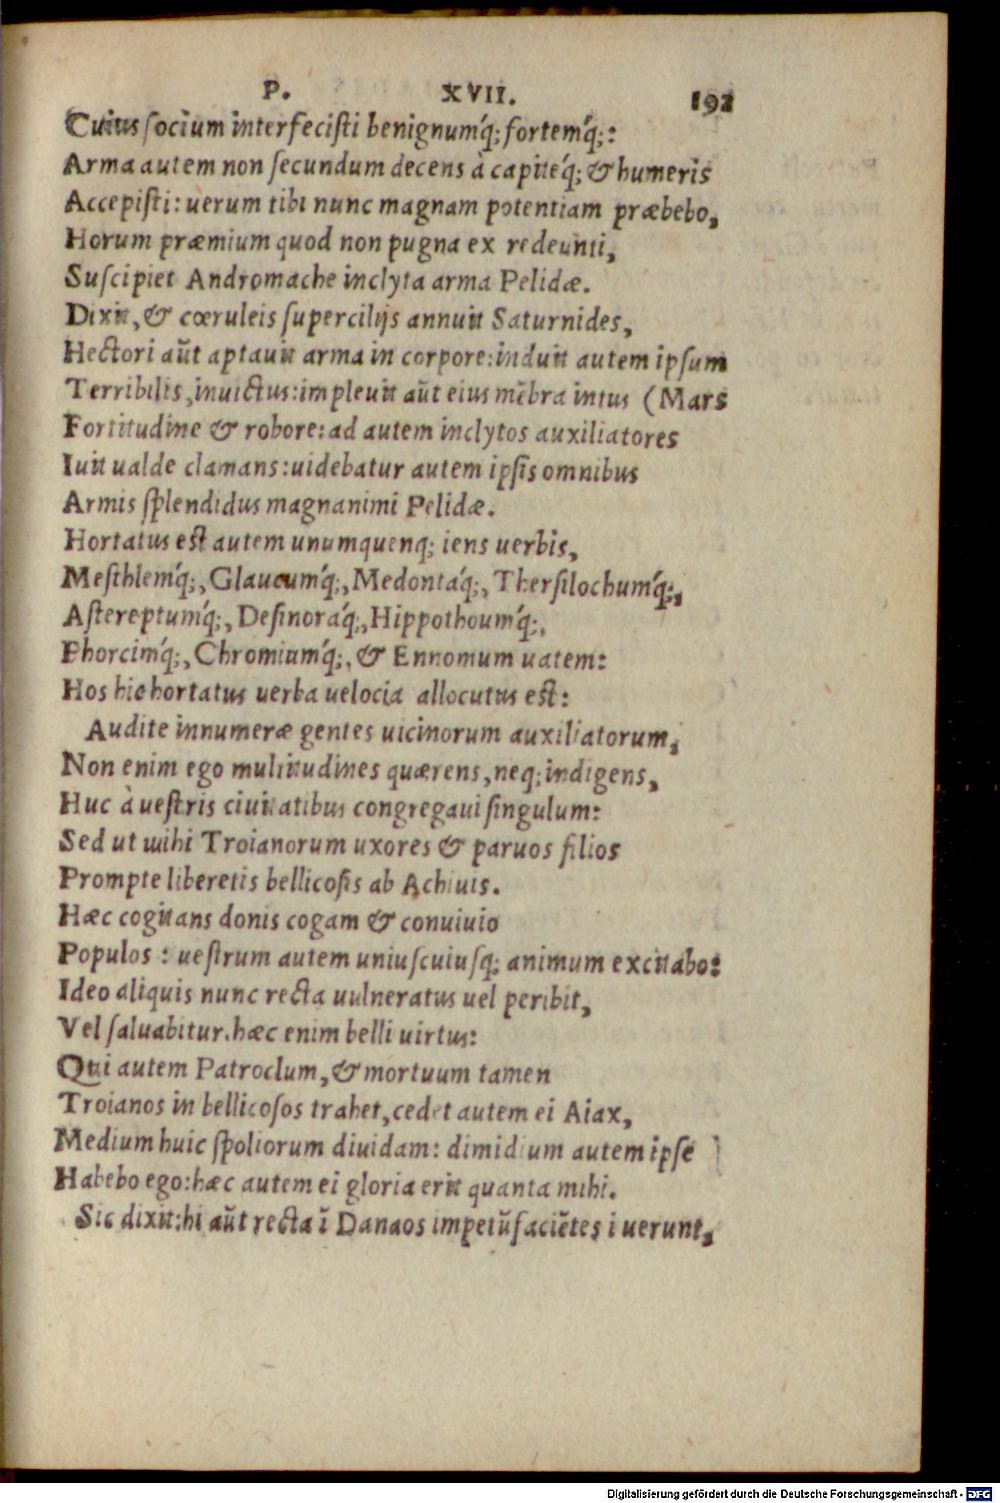 P. XVII. 192
Cuius socium interfecisti benignumq́;fortemq́;:
Arma autem non secundum decens à capiteq́;&humeris
Accepisti:uerum tibi nunc magnam potentiam præbebo,
Horum præmium quod non pugna ex redeunti,
Suscipiet Andromache inclyta arma Pelidæ.
Dixit,& cœruleis supercilijs annuit Saturnides,
Hectori aũt aptauit arma in corpore:induit autem ipsum
Terribilis,inuictus:impleuit aũt eius mẽbra intus (Mars
Fortitudine & robore:ad autem inclytos auxiliatores
Iuit ualde clamans:uidebatur autem ipsis omnibus
Armis splendidus magnanimi Pelidæ.
Hortatus est autem unumquenq; iens uerbis,
Mesthlemq́;,Glaucumq́;,Medontaq́;,Thersilochumq́;,
Astereptumq́;,Desinoraq́;,Hippothoumq́;,
Phorcimq́;,Chromiumq́;,& Ennomum uatem:
Hos hic hortatus uerba uelocia allocutus est:
Audite innumeræ gentes uicinorum auxiliatorum,
Non enim ego multitudines quærens,neq;indigens,
Huc à uestris ciuitatibus congregaui singulum:
Sed ut mihi Troianorum uxores & paruos filios
Prompte liberetis bellicosis ab Achiuis.
Hæc cogitans donis cogam & conuiuio
Populos : uestrum autem uniuscuiusq; animum excitabo:
Ideo aliquis nunc recta uulneratus uel peribit,
Vel saluabitur.hæc enim belli uirtus:
Qui autem Patroclum,&mortuum tamen
Troianos in bellicosos trahet,cedet autem ei Aiax,
Medium huic spoliorum diuidam: dimidium autem ipse
Habebo ego:hæc autem ei gloria erit quanta mihi.
Sic dixit:hi aũt recta ĩ Danaos impetũfaciẽtes i uerunt,
Digitalisierung gefördert durch die Deutsche Forschungsgemeinschaft - DFG